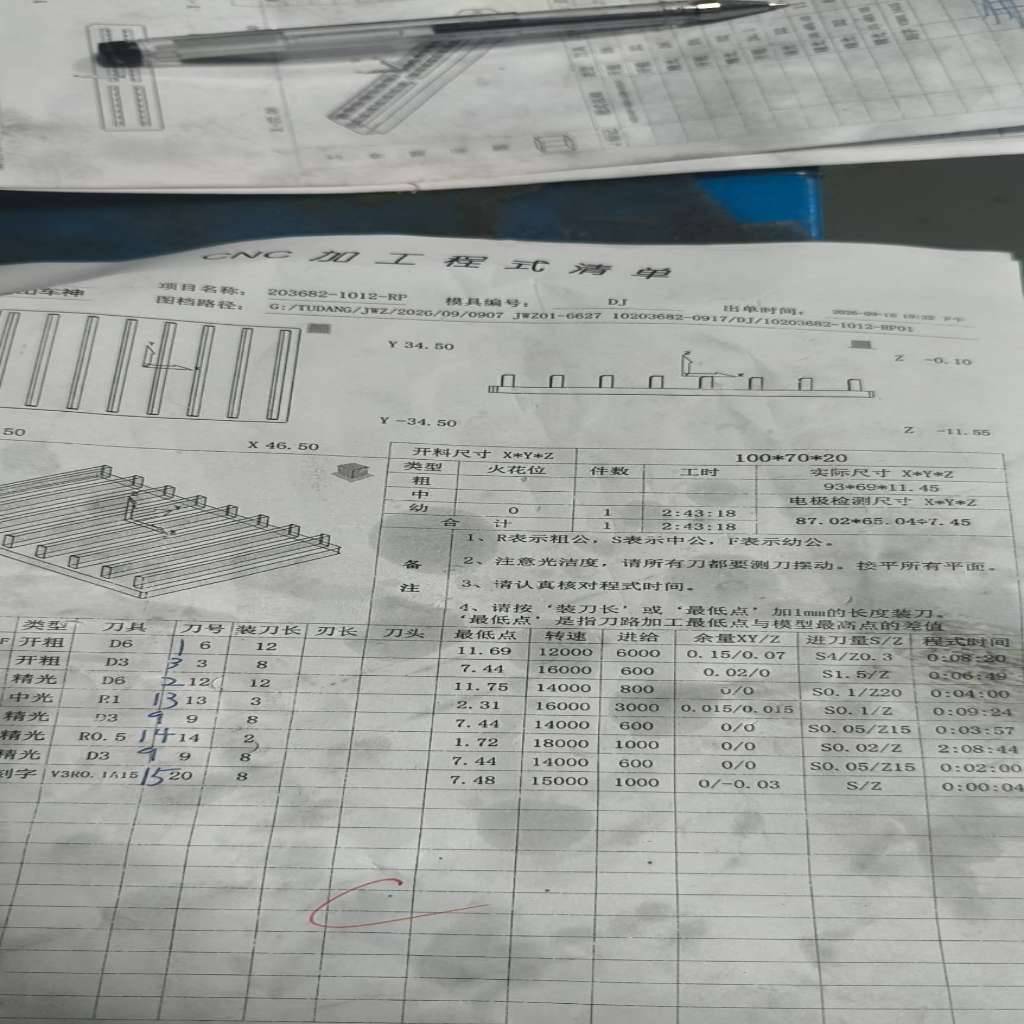 CNC 加工程式清单
车神 项目名称: 203682-1012-RP 模具编号: DJ 出单时间:
图档路径: G:/TUDANG/JWZ/2026/09/0907 JWZ01-6627 10203682-0917/DJ/10203682-1012-RP01
Y 34.50
Z -0.10
Y -34.50
Z -11.55
50
X 46.50
开料尺寸 X*Y*Z 100*70*20
类型 火花位 件数 工时 实际尺寸 X*Y*Z
粗 93*69*11.45
中 电极检测尺寸 X*Y*Z
幼 0 1 2:43:18 87.02*65.04*7.45
合计 1 2:43:18
备注
1、R表示粗公，S表示中公，F表示幼公。
2、注意光洁度，请所有刀都要测刀摆动。控平所有平面。
3、请认真核对程式时间。
4、请按‘装刀长’或‘最低点’加1mm的长度装刀。
‘最低点’是指刀路加工最低点与模型最高点的差值
类型 刀具 刀号 装刀长 刃长 刀头 最低点 转速 进给 余量XY/Z 进刀量S/Z 程式时间
F 开粗 D6 1 6 12 11.69 12000 6000 0.15/0.07 S4/Z0.3 0:08:20
开粗 D3 3 3 8 7.44 16000 600 0.02/0 S1.5/Z 0:06:49
精光 D6 2 12 12 11.75 14000 800 0/0 S0.1/Z20 0:04:00
中光 R1 13 13 3 2.31 16000 3000 0.015/0.015 S0.1/Z 0:09:24
精光 D3 9 9 8 7.44 14000 600 0/0 S0.05/Z15 0:03:57
精光 R0.5 14 14 2 1.72 18000 1000 0/0 S0.02/Z 2:08:44
精光 D3 9 9 8 7.44 14000 600 0/0 S0.05/Z15 0:02:00
刻字 V3R0.1A15 15 20 8 7.48 15000 1000 0/-0.03 S/Z 0:00:04